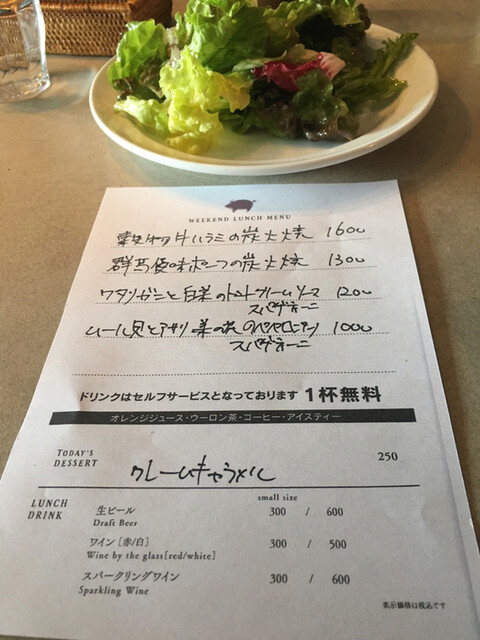 WEEKEND LUNCH MENU
穀物牛ハラミの炭火焼 1600
群馬優味ポークの炭火焼 1300
ワタリガニと白菜のトマトクリームソース 1200
スパゲティーニ
ムール貝とアサリ 菜の花のペペロンチーノ 1000
スパゲティーニ
ドリンクはセルフサービスとなっております 1杯無料
オレンジジュース・ウーロン茶・コーヒー・アイスティー
TODAY'S DESSERT クレームキャラメル 250
LUNCH DRINK
small size
生ビール 300 / 600
Draft Beer
ワイン [赤/白] 300 / 500
Wine by the glass[red/white]
スパークリングワイン 300 / 600
Sparkling Wine
表示価格は税込です